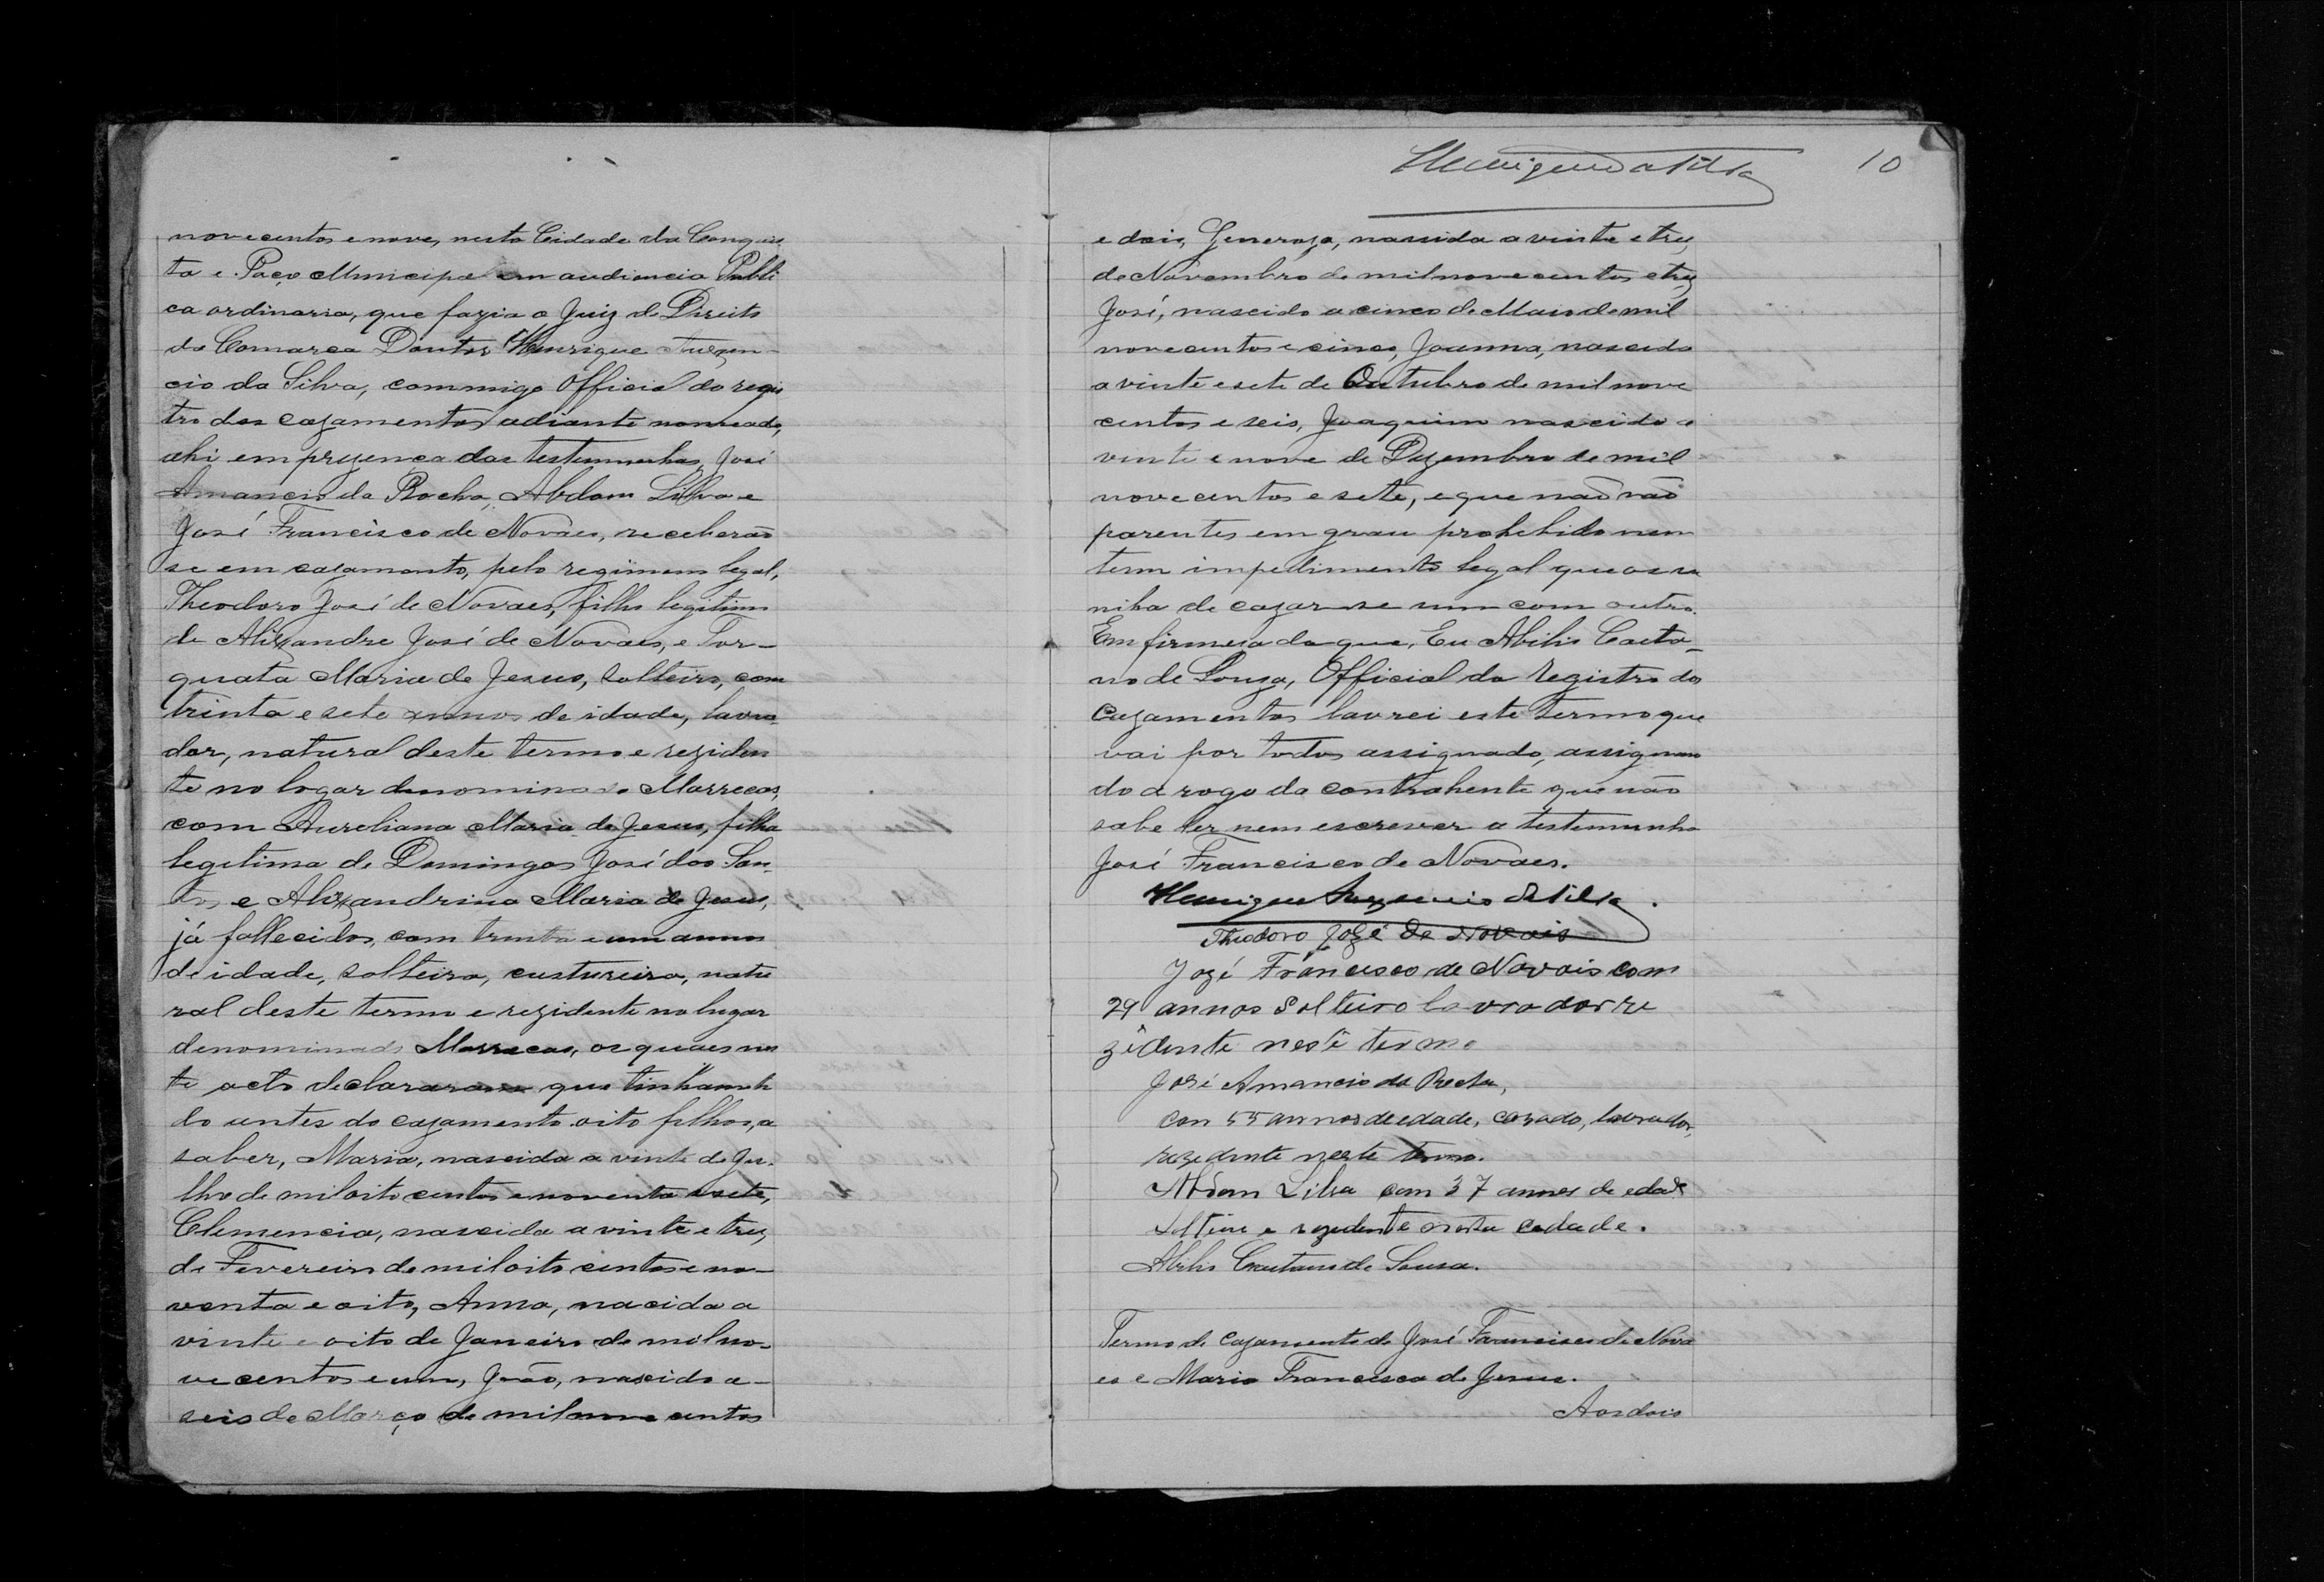 novecentos e nove, nesta Cidade da Conquis
ta e Paço Municipal em audiencia Publi
ca ordinaria, que fazia o Juiz de Direito
da Comarca Doutor Henrique
cio da Silva, commigo Official do regis
tro dos cazamentos adiante nomeado,
ahi em prezença das testemunhas, José
Amancio da Rocha, Abdom Silva e
José Francisco de Novaes, receberão
se em cazamento, pelo regimem legal,
Theodoro José de Novaes, filho legitimo
de Alixandre José de Novaes, e Tor-
quata Maria de Jesus, solteiro, com
trinta e sete annos de idade, lavra-
dor, natural deste termo e reziden
te no logar denominado Marrecas,
com Aureliana Maria de Jesus, filha
legitima de Domingos José dos San-
tos e Alixandrina Maria de Jesus,
já fallecidos, com trinta e um annos
de idade, solteira, custureira, natu
ral deste termo e rezidente no lugar
denominado Marrecas, os quaes nes
te acto declararam que tinham ti
do antes do cazamento oito filhos, a
saber, Maria, nascida a vinte de Ju-
lho de mil oito centos e noventa e sete,
Clemencia, nascida a vinte e trez
de Fevereiro de mil oito centos e no-
venta e oito, Anna, nacida a
vinte e oito de Janeiro de mil no-
ve centos e um, João, nascido a
seis de Março de mil nove centos
10
e dois, Generoza, nascida a vinte e trez
de Novembro de mil nove centos e trez
José, nascido a cinco de Maio de mil
nove centos e cinco, Joanna, nascida
a vinte e sete de Outubro de mil nove
centos e seis, Joaquim nascido a
vinte e nove de Dezembro de mil
nove centos e sete, e que não são
parentes em grau prohebido nem
tem impedimento legal que os
niba de cazar-se um com outro.
Em firmeza do que, Eu Abilio Caeta-
no de Souza, Official do registro dos
Cazamentos lavrei este termo que
vai por todos assignado, assignan
do a rogo da contrahente que não
sabe ler nem escrever a testemunha
José Francisco de Novaes.
Henrique da Silva.
Theodoro José de Novais
Jozé Francisco de Novais com
29 annos Solteiro lavrador re
zidente neste termo
José Amancio da Rocha,
com 55 annos de edade, casado, lavrador,
rezedente neste termo.
Abdom Silva com 37 annos de edade
solteiro e rezedente nesta cedade.
Abilio Caetano de Sousa.
Termo de Cazamento de José Francisco de Nova
es e Maria Francisca de Jesus.
Aos dois